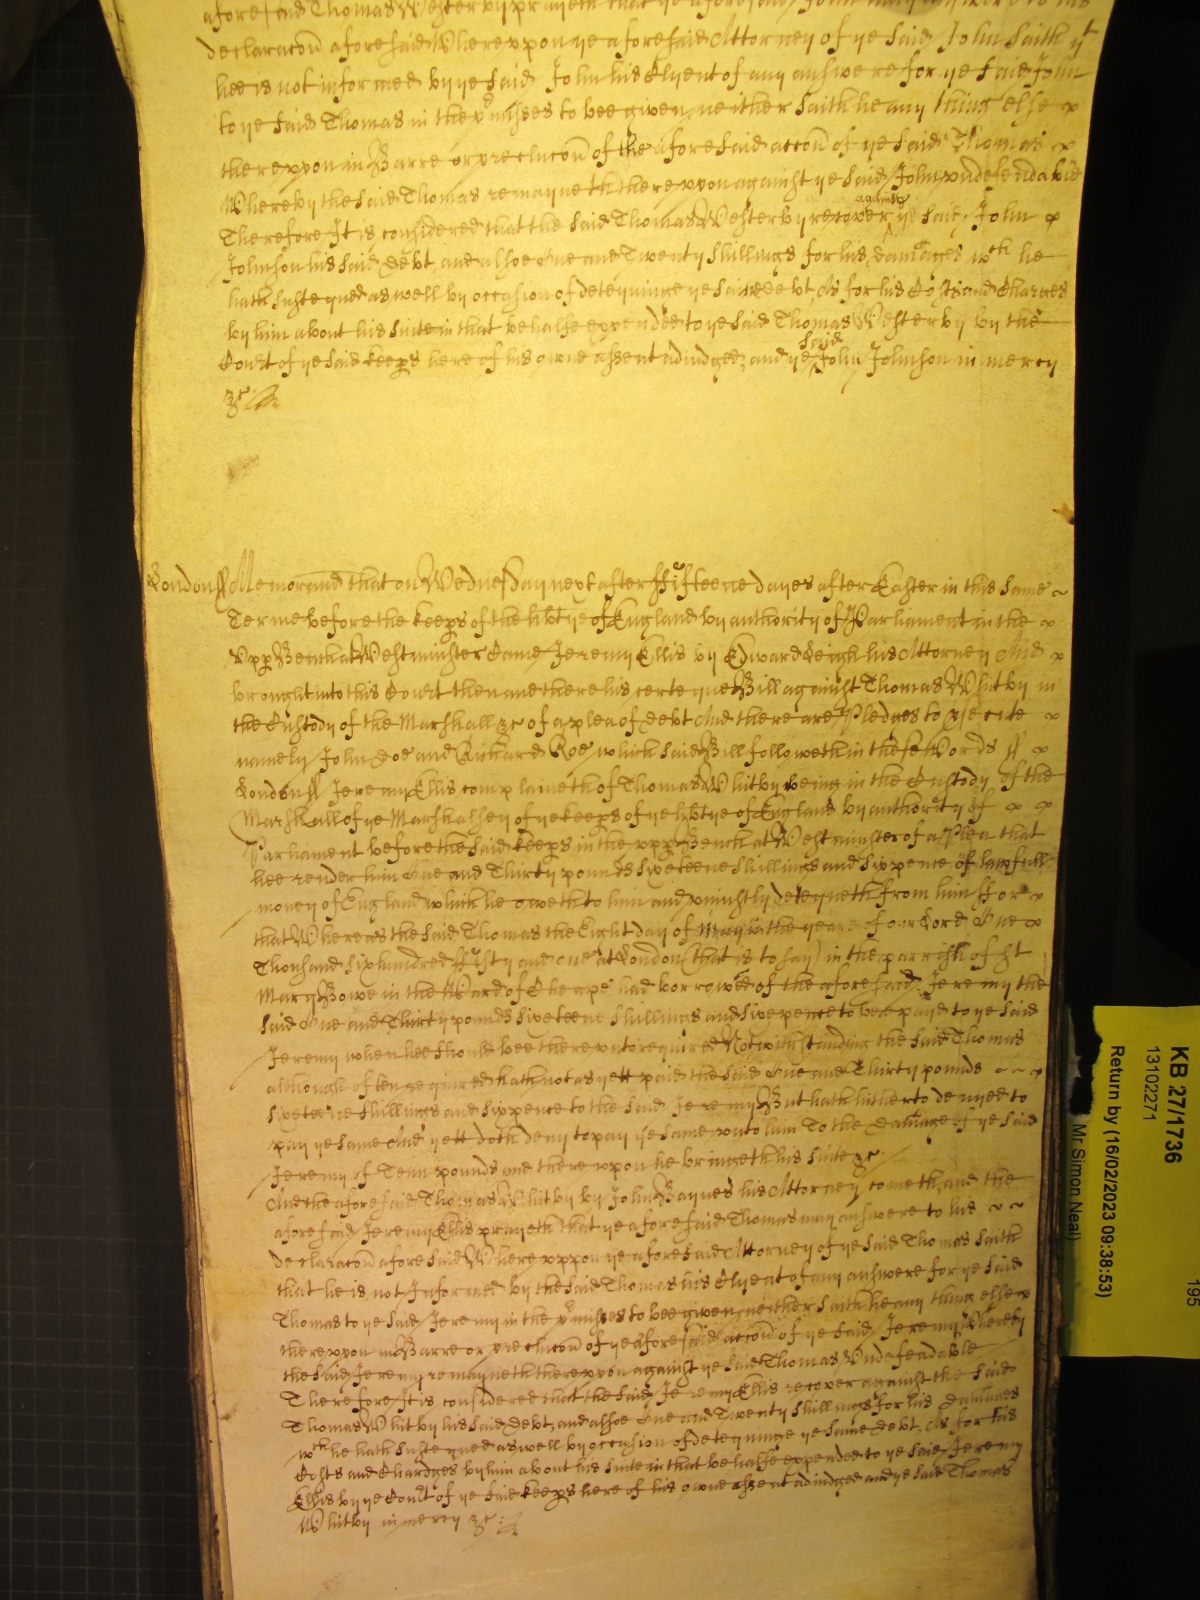 aforesaid Thomas Westerby prayeth that ye aforesaid John may answere to his
declaracon aforesaid Whereuppon ye aforesaid Attorney of ye said John saith yt
hee is not informed by ye said John his Clyent of any answere for ye said John
to ye said Thomas in the pmisses to bee given, neither saith he any thing else
thereuppon in Barre or preclucon of the aforesaid accon of ye said Thomas
Whereby the said Thomas remayneth thereuppon against ye said John undefendable
Therefore It is considered that the said Thomas Westerby recover against ye said John
Johnson his said debt, and alsoe One and Twenty shillings for his damages wch he
hath susteyned as well by occasion of deteyninge ye same debt, As for his Costs and Charges
by him about his suite in that behalfe expended to ye said Thomas Westerby by the
Court of ye said keeps here of his owne assent adiudged, and ye said John Johnson in mercy
&c
London ss Memorand that on Wednesday next after Fifteene dayes after Easter in this same
Terme before the keeps of the libtye of England by authority of Parliament in the
Upp Bench at Westminster Came Jeremy Ellis by Edward Leigh his Attorney And
brought into this Court then and there his certeyne Bill against Thomas Whitby in
the Custody of the Marshall &c of a plea of debt And there are Pledges to psecute
namely John Doe and Richard Roe which said Bill followeth in these Words ss
London ss Jeremy Ellis complaineth of Thomas Whitby being in the Custody of the
Marshall of ye Marshalsey of ye keeps of ye libtye of England by authority of
Parliament before the said keeps in the upp Bench at Westminster of a Plea that
hee render him One and Thirty pounds sixteene shillings and sixpence of lawfull
money of England which he oweth to him and uniustly deteyneth from him For
that Whereas the said Thomas the Eight day of May in the yeare of our Lord One
Thousand six hundred Fifty and one at London (that is to say) in the parrish of St
Mary Bowe in the Ward of Cheape had borrowed of the aforesaid Jeremy the
said One and Thirty pounds sixteene shillings and sixpence to bee payd to ye said
Jeremy when hee should bee thereunto required Notwithstanding the said Thomas
although often required hath not as yett paid the said One and Thirty pounds
sixteene shillings and sixpence to the said Jeremy But hath hitherto denyed to
pay ye same And yett doth deny to pay ye same unto him To the damage of ye said
Jeremy of Tenn pounds and thereuppon he bringeth his suite &c
And the aforesaid Thomas Whitby by John Baynes his Attorney cometh, and the
aforesaid Jeremy Ellis prayeth that ye aforesaid Thomas may answere to his
declaracon aforesaid Whereuppon ye aforesaid Attorney of ye said Thomas saith
that he is not Informed by the said Thomas his Clyent of any answere for ye said
Thomas to ye said Jeremy in the pmisses to bee given, neither saith he any thing else
thereuppon in Barre or preclucon of ye aforesaid accon of ye said Jeremy Whereby
the said Jeremy remayneth thereuppon against ye said Thomas Undefendable
Therefore It is considered that the said Jeremy Ellis recover against the said
Thomas Whitby his said debt, and alsoe One and Twenty shillings for his damages
wch he hath susteyned as well by occasion of deteyninge ye same debt, As for his
Costs and Chardges by him about his suite in that behalfe expended to ye said Jeremy
Ellis by ye Court of ye said keeps here of his owne assent adiudged and ye said Thomas
Whitby in mercy &c
KB 27/1736
13102271
Return by (16/02/2023 09:38:53)
Mr Simon Neal
195